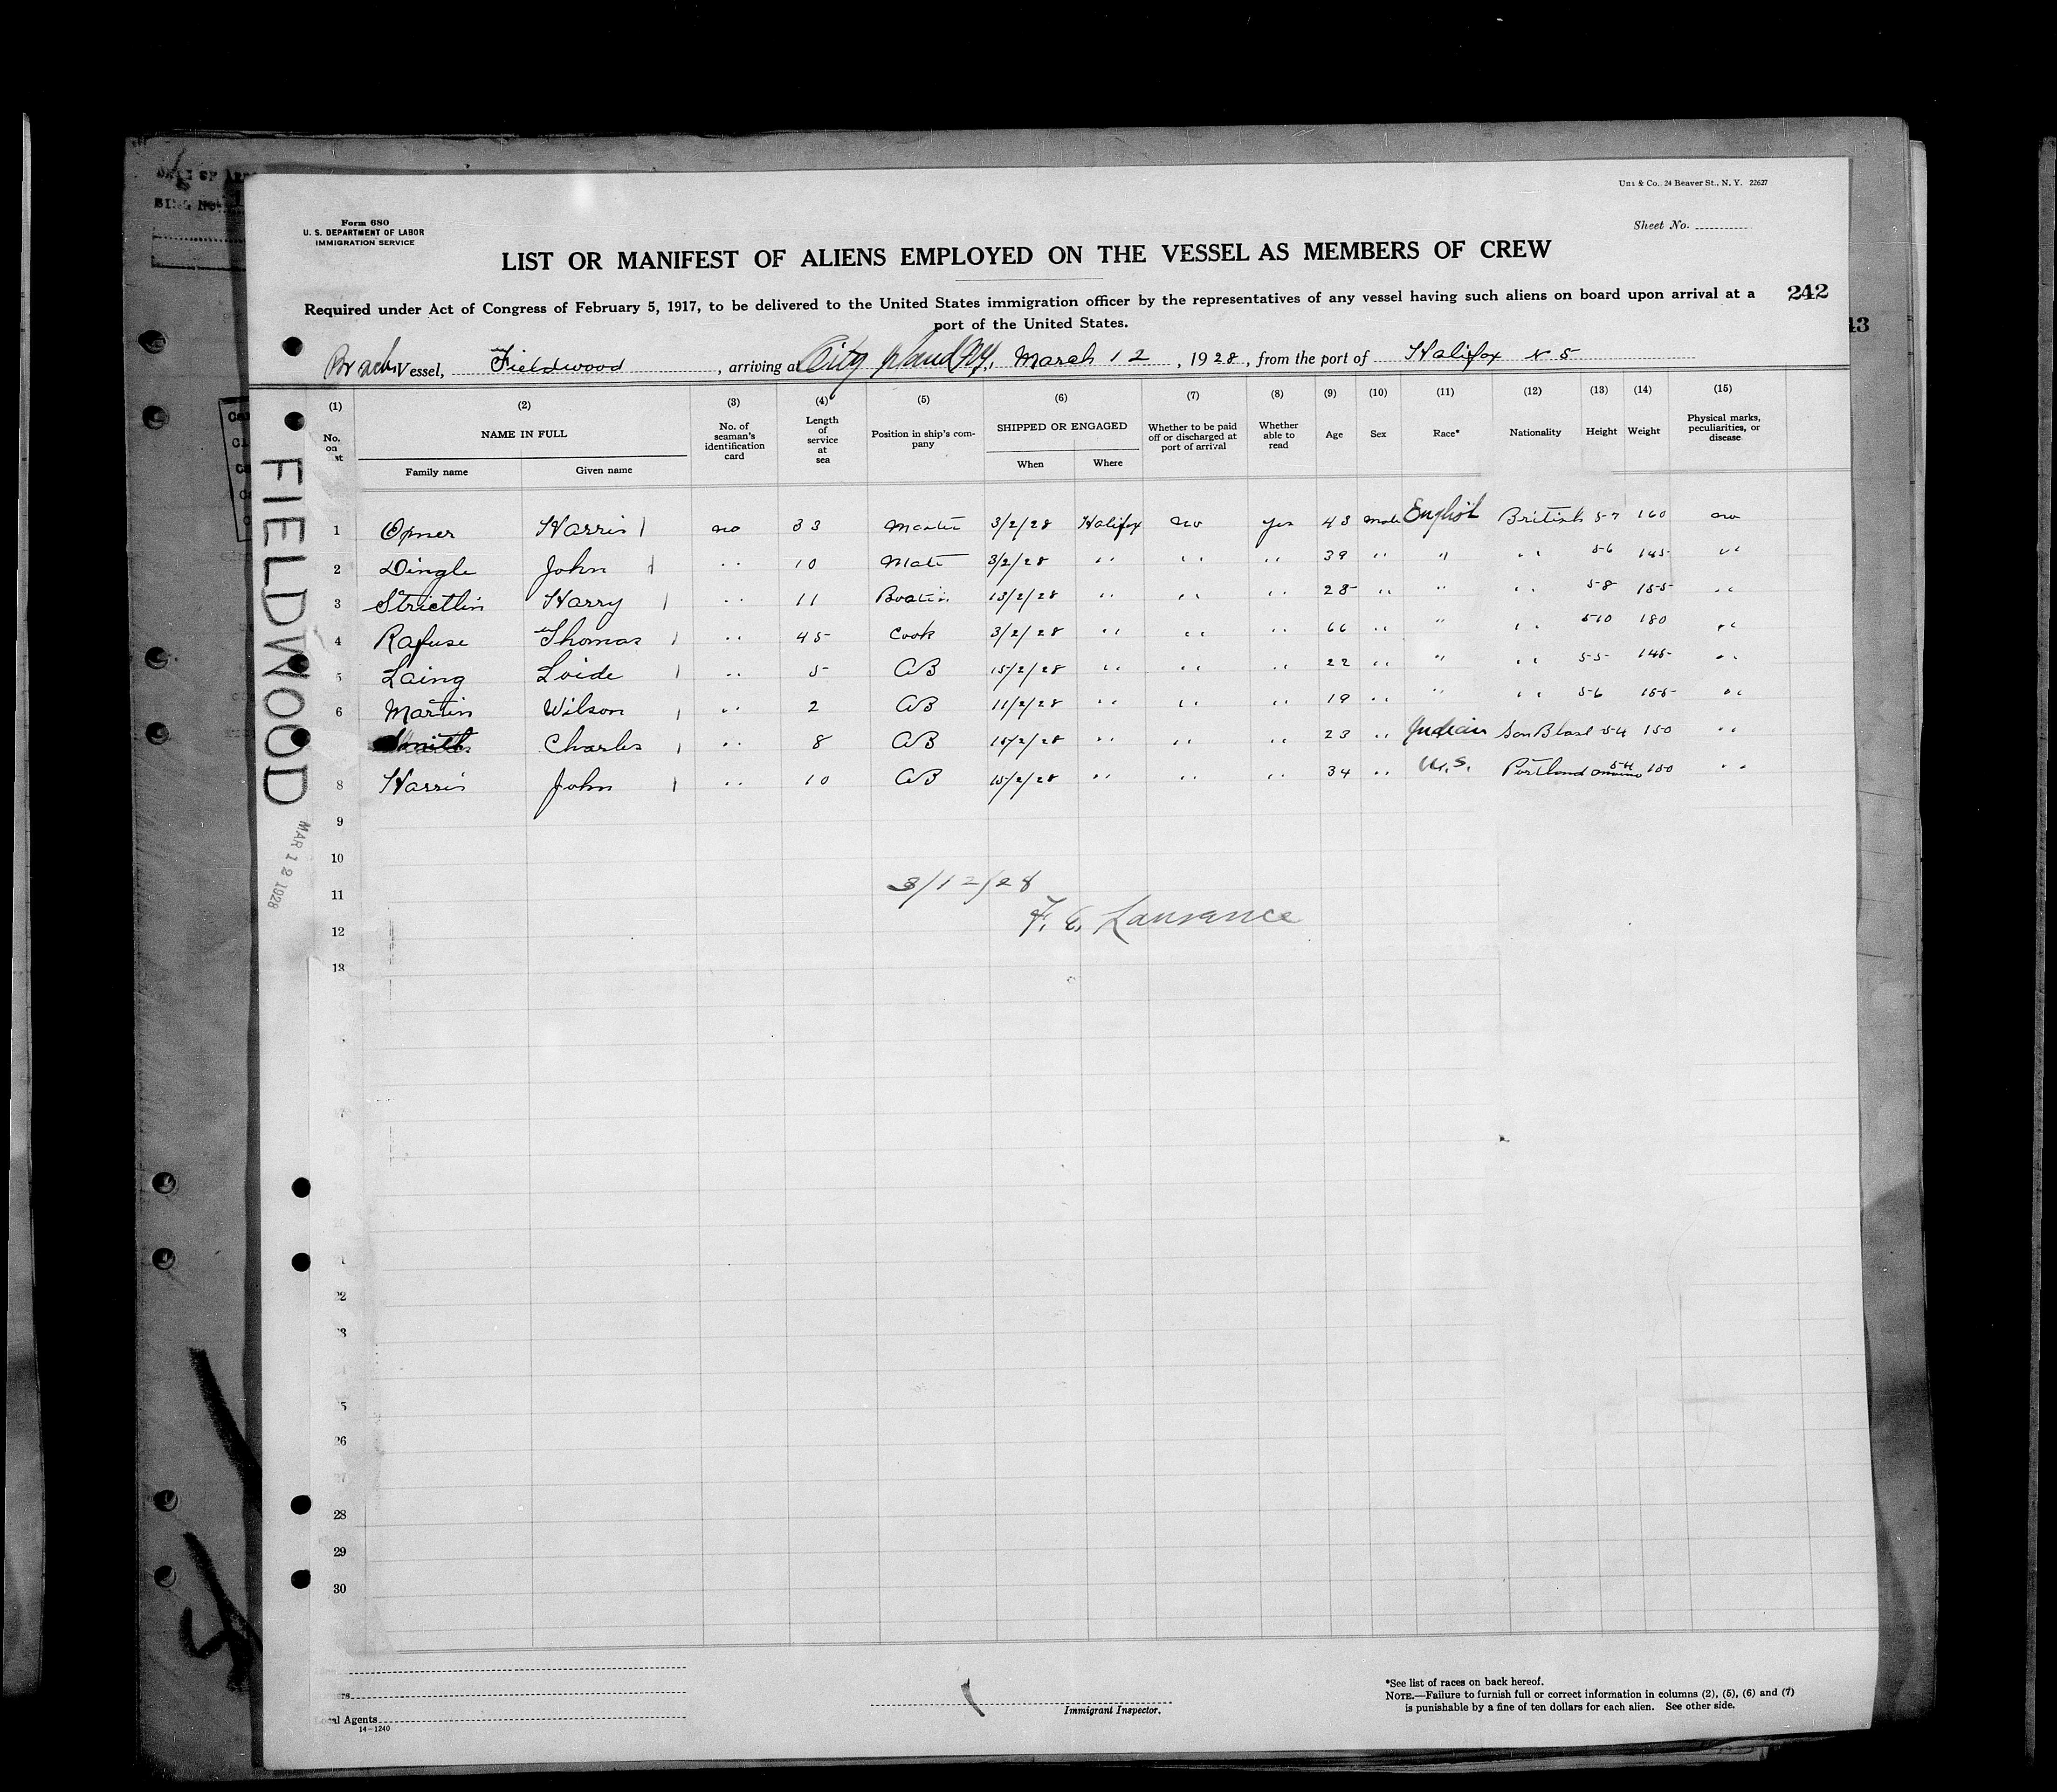 Uni & Co. 24 Beaver St., N. Y. 22627
Form 680
U. S. DEPARTMENT OF LABOR
IMMIGRATION SERVICE
Sheet No.
LIST OR MANIFEST OF ALIENS EMPLOYED ON THE VESSEL AS MEMBERS OF CREW
242
Required under Act of Congress of February 5, 1917, to be delivered to the United States immigration officer by the representatives of any vessel having such aliens on board upon arrival at a
port of the United States.
Vessel, Fieldwood, arriving at City Island NY, March 12, 1928, from the port of Halifax N S
(1) (2) (3) (4) (5) (6) (7) (8) (9) (10) (11) (12) (13) (14) (15)
No. on NAME IN FULL Family name Given name No. of seaman's identification card Length of service at sea Position in ship's company SHIPPED OR ENGAGED When Where Whether to be paid off or discharged at port of arrival Whether able to read Age Sex Race* Nationality Height Weight Physical marks, peculiarities, or disease
1 Harris no 33 Master 3/2/28 Halifax no yes 43 male English British 5-7 160 no
2 Dingle John " 10 Mate 3/2/28 " " " 39 " " " 5-6 145 "
3 Harry " 11 13/2/28 " " " 28 " " " 5-8 155 "
4 Rafuse Thomas " 45 Cook 3/2/28 " " " 66 " " " 5-10 180 "
5 Laing Loide " 5 AB 15/2/28 " " " 22 " " " 5-5 145 "
6 Martin Wilson " 2 AB 11/2/28 " " " 19 " " " 5-6 155 "
Smith Charles " 8 AB 15/2/28 " " " 23 " Indian San Blas 5-4 150 "
8 Harris John " 10 AB 15/2/28 " " " 34 " U.S. Portland 5-4 150 "
9
10
11
12
13
3/12/28
F. E. Laurance
22
23
25
26
28
29
30
FIELDWOOD
MAR 12 1928
Local Agents
14-1240
Immigrant Inspector.
*See list of races on back hereof.
NOTE.—Failure to furnish full or correct information in columns (2), (5), (6) and (7)
is punishable by a fine of ten dollars for each alien. See other side.